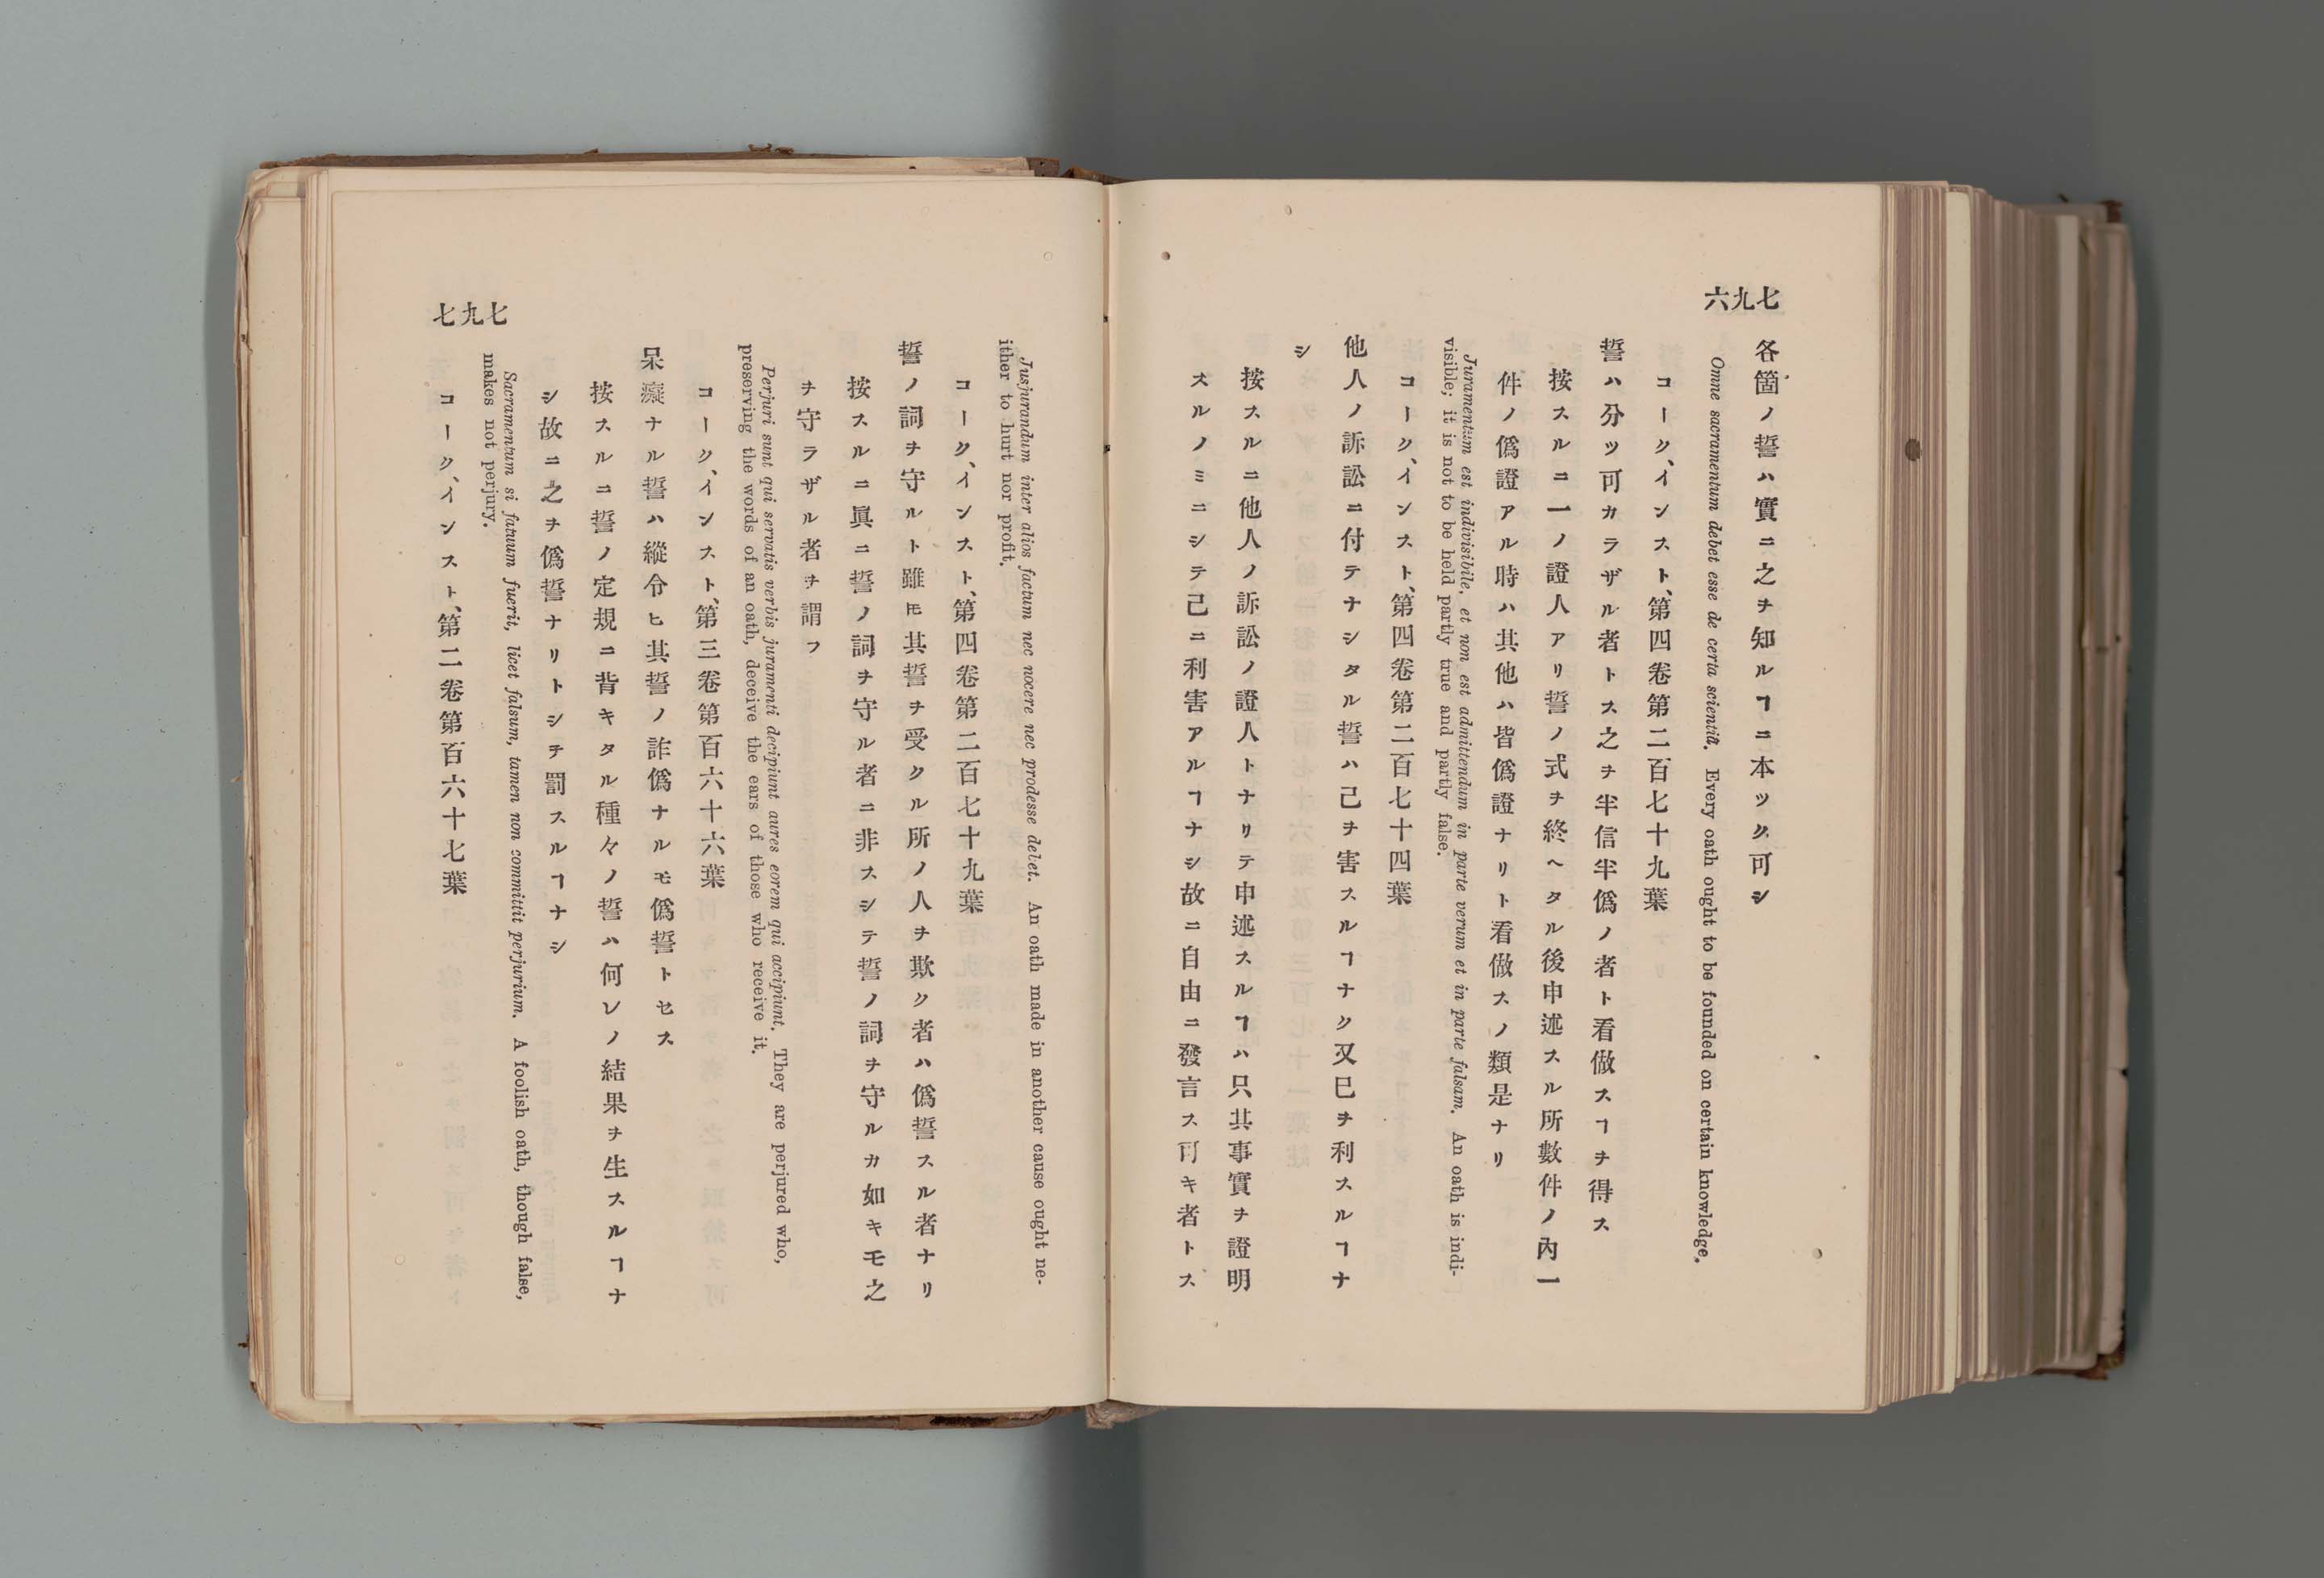 七九六
各箇ノ誓ハ實ニ之ヲ知ルヿニ本ツク可シ
Omne sacramentum debet esse de certa scientiâ. Every oath ought to be founded on certain knowledge.
コーク、インスト、第四卷第二百七十九葉
誓ハ分ツ可カラザル者トス之ヲ半信半僞ノ者ト看做スヿヲ得ス
按スルニ一ノ證人アリ誓ノ式ヲ終ヘタル後申述スル所數件ノ內一
件ノ僞證アル時ハ其他ハ皆僞證ナリト看做スノ類是ナリ
Juramentum est indivisibile, et non est admittendum in parte verum et in parte falsam. An oath is indi-
visible; it is not to be held partly true and partly false.
コーク、インスト、第四卷第二百七十四葉
他人ノ訴訟ニ付テナシタル誓ハ己ヲ害スルヿナク又巳ヲ利スルヿナ
シ
按スルニ他人ノ訴訟ノ證人トナリテ申述スルヿハ只其事實ヲ證明
スルノミニシテ己ニ利害アルヿナシ故ニ自由ニ發言ス可キ者トス
Jusjurandum inter alios factum nec nocere nec prodesse debet. An oath made in another cause ought ne-
ither to hurt nor profit.
コーク、インスト、第四卷第二百七十九葉
誓ノ詞ヲ守ルト雖モ其誓ヲ受クル所ノ人ヲ欺ク者ハ僞誓スル者ナリ
按スルニ眞ニ誓ノ詞ヲ守ル者ニ非スシテ誓ノ詞ヲ守ルカ如キモ之
ヲ守ラザル者ヲ謂フ
Perjuri sunt qui servatis verbis juramenti decipiunt aures eorem qui accipiunt. They are perjured who,
preserving the words of an oath, deceive the ears of those who receive it.
コーク、インスト、第三卷第百六十六葉
呆癡ナル誓ハ縱令ヒ其誓ノ詐僞ナルモ僞誓トセス
按スルニ誓ノ定規ニ背キタル種々ノ誓ハ何レノ結果ヲ生スルヿナ
シ故ニ之ヲ僞誓ナリトシテ罰スルヿナシ
Sacramentum si fatuum fuerit, licet falsum, tamen non committit perjurium. A foolish oath, though false,
makes not perjury.
コーク、インスト、第二卷第百六十七葉
七九七